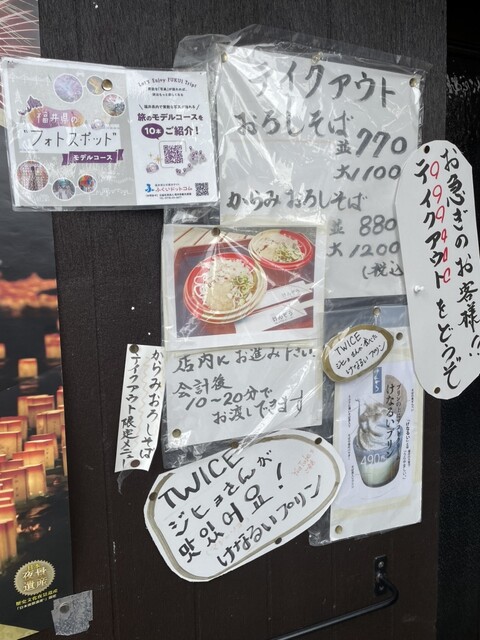 Let's Enjoy FUKUI Trip!
福井県の
"フォトスポット"
モデルコース
旅のモデルコースを
10本ご紹介!
ふくいドットコム
テイクアウト
おろしそば
並 770
大 1100
からみおろしそば
並 880
大 1200
(税込
お急ぎのお客様!!
テイクアウトをどうぞ
店内にお進み下さい
会計後
10~20分で
お渡しできます
からみおろしそば
テイクアウト限定メニュー
TWICE
ジヒョさんが食べた
けなるいプリン
けなるいプリン
490
TWICE
ジヒョさんが
맛있어요!
けなるいプリン
夜祭
遺産